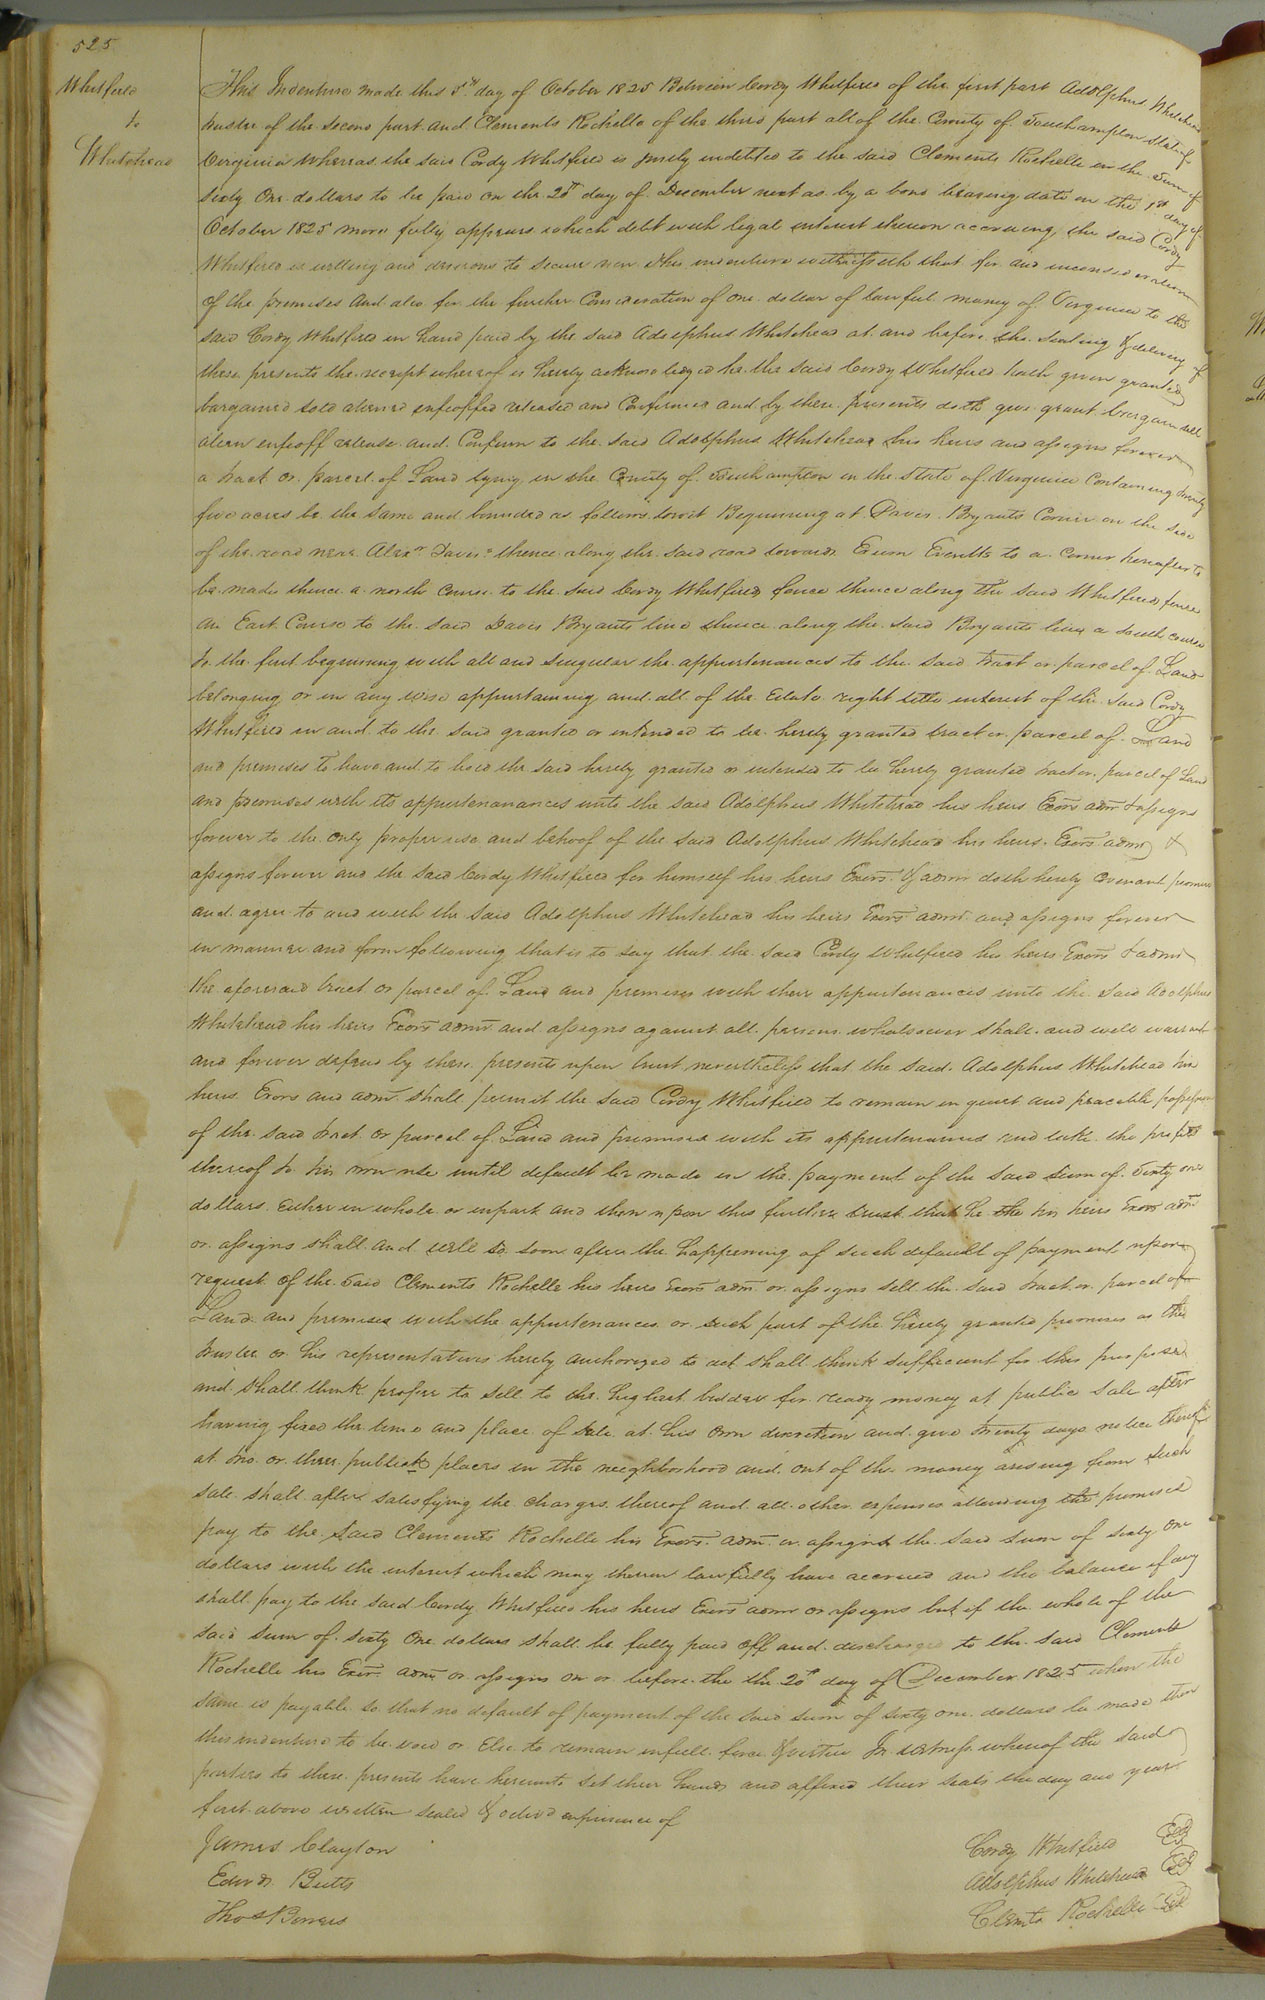 525
Whitfield
to
Whitehead
This Indenture made this 3rd day of October 1825 Between Cordy Whitfield of the first part Adolphus Whitehead
trustee of the second part and Clements Rochelle of the third part all of the County of Southampton State of
Virginia Whereas the said Cordy Whitfield is justly indebted to the said Clements Rochelle in the Sum of
Sixty One dollars to be paid on the 20th day of December next as by a bond bearing date on the 1st day of
October 1825 more fully appears which debt with legal interest thereon accruing the said Cordy
Whitfield is willing and desirous to secure now this indenture witnesseth that for and inconsideration
of the premises And also for the further Consideration of one dollar of lawful money of Virginia to the
said Cordy Whitfield in hand paid by the said Adolphus Whitehead at and before the Sealing & delivery of
these presents the receipt whereof is hereby acknowledged he the said Cordy Whitfield hath given granted
bargained sold aliened enfeoffed released and Confirmed and by these presents doth give grant bargain sell
alien enfeoff release and Confirm to the said Adolphus Whitehead his heirs and assigns forever
a tract or parcel of Land lying in the County of Southampton in the State of Virginia Containing twenty
five acres be the same and bounded as follows towit Beginning at Davis Bryants Corner on the side
of the road near Alexr Davis's thence along the said road towards Exum Everitts to a Corner hereafter to
be made thence a north Course to the said Cordy Whitfields fence thence along the said Whitfields fence
an East Course to the said Davis Bryants line thence along the said Bryants line a South course
to the first beginning with all and singular the appurtenances to the said tract or parcel of Land
belonging or in any wise appurtaining and all of the Estate right title interest of the said Cordy
Whitfield in and to the said granted or intended to be hereby granted tract or parcel of Land
and premises to have and to hold the said hereby granted or intended to be hereby granted tract or parcel of Land
and premises with its appurtenanances unto the said Adolphus Whitehead his heirs Exors adm & assigns
forever to the only proper use and behoof of the said Adolphus Whitehead his heirs Exors adm &
assigns forever and the said Cordy Whitfield for himself his heirs Exors & admr doth hereby Covenant promise
and agree to and with the said Adolphus Whitehead his heirs Exors admr and assigns forever
in manner and form following that is to say that the said Cordy Whitfield his heirs Exors & admr
the aforesaid tract or parcel of Land and premises with their appurtenances unto the said Adolphus
Whitehead his heirs Exors admr and assigns against all persons whatsoever shall and will warrant
and forever defend by these presents upon trust nevertheless that the said Adolphus Whitehead his
heirs Exors and admr shall permit the said Cordy Whitfield to remain in quiet and peacable possession
of the said tract or parcel of Land and premises with its appurtenances and take the profits
thereof to his own use until default be made in the payment of the said Sum of Sixty one
dollars Either in whole or in part and then upon this further trust that he the his heirs Exors admr
or assigns shall and will so soon after the happening of such default of payment upon
request of the said Clements Rochelle his heirs Exors adm or assigns sell the said tract or parcel of
Land and premises with the appurtenances or such part of the hereby granted premises as the
trustee or his representatives hereby authorized to act shall think sufficient for this purpose
and shall think proper to sell to the highest bidder for ready money at public sale after
having fixed the time and place of sale at his own discretion and give twenty days notice thereof
at two or three public places in the neighborhood and out of the money arising from such
sale shall after satisfying the charges thereof and all other expenses attending the premises
pay to the said Clements Rochelle his Exors adm or assigns the said sum of sixty one
dollars with the interest which may thereon lawfully have accrued and the balance if any
shall pay to the said Cordy Whitfield his heirs Exors admr or assigns but if the whole of the
said sum of sixty One dollars shall be fully paid off and discharged to the said Clements
Rochelle his Exors adm or assigns on or before the the 20th day of December 1825 when the
same is payable so that no default of payment of the said sum of sixty one dollars be made then
this indenture to be void or Else to remain in full force & virtue In witness whereof the said
parties to these presents have hereunto set their hands and affixed their seals the day and year
first above written sealed & delivd in presence of
James Clayton
Edwd. Butts
Thos Bowers
Cordy Whitfield
Adolphus Whitehead
Clemts Rochelle